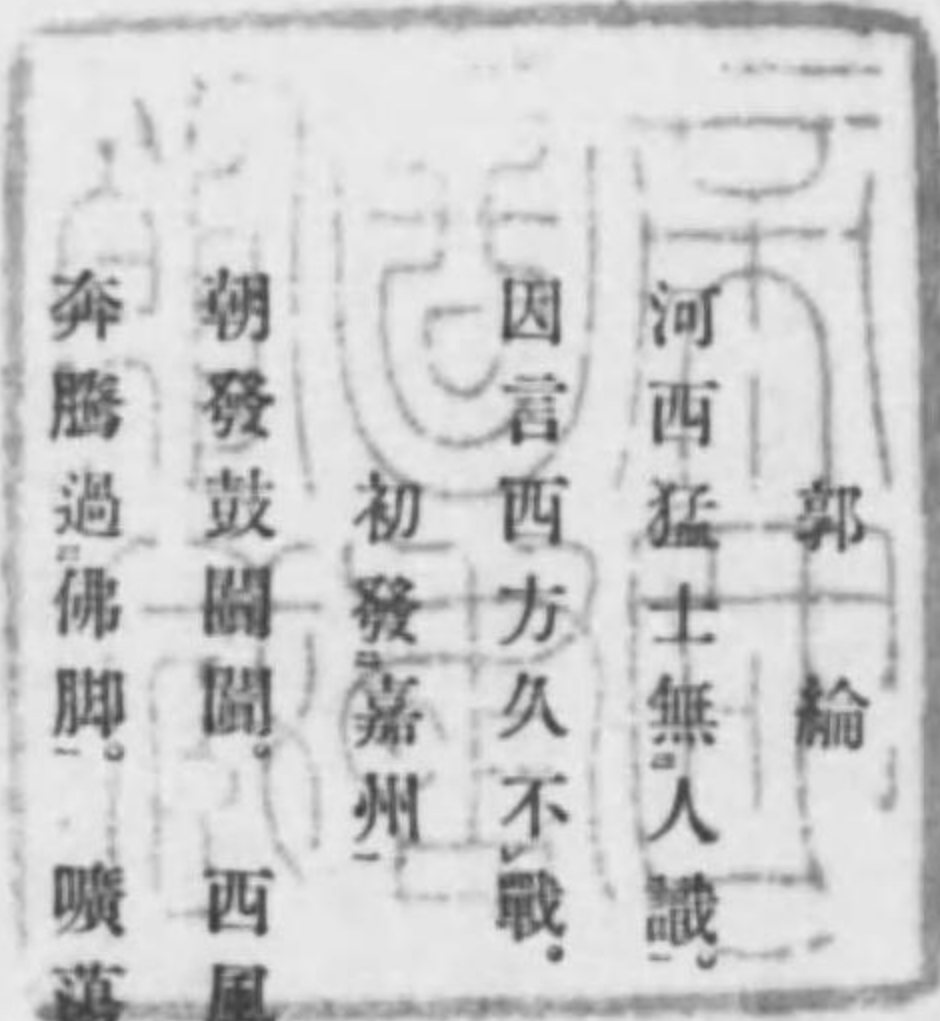 郭綸
河西猛士無人識。
因言西方久不戰。
初發嘉州
朝發鼓闐闐。西風
奔騰過佛脚。曠蕩